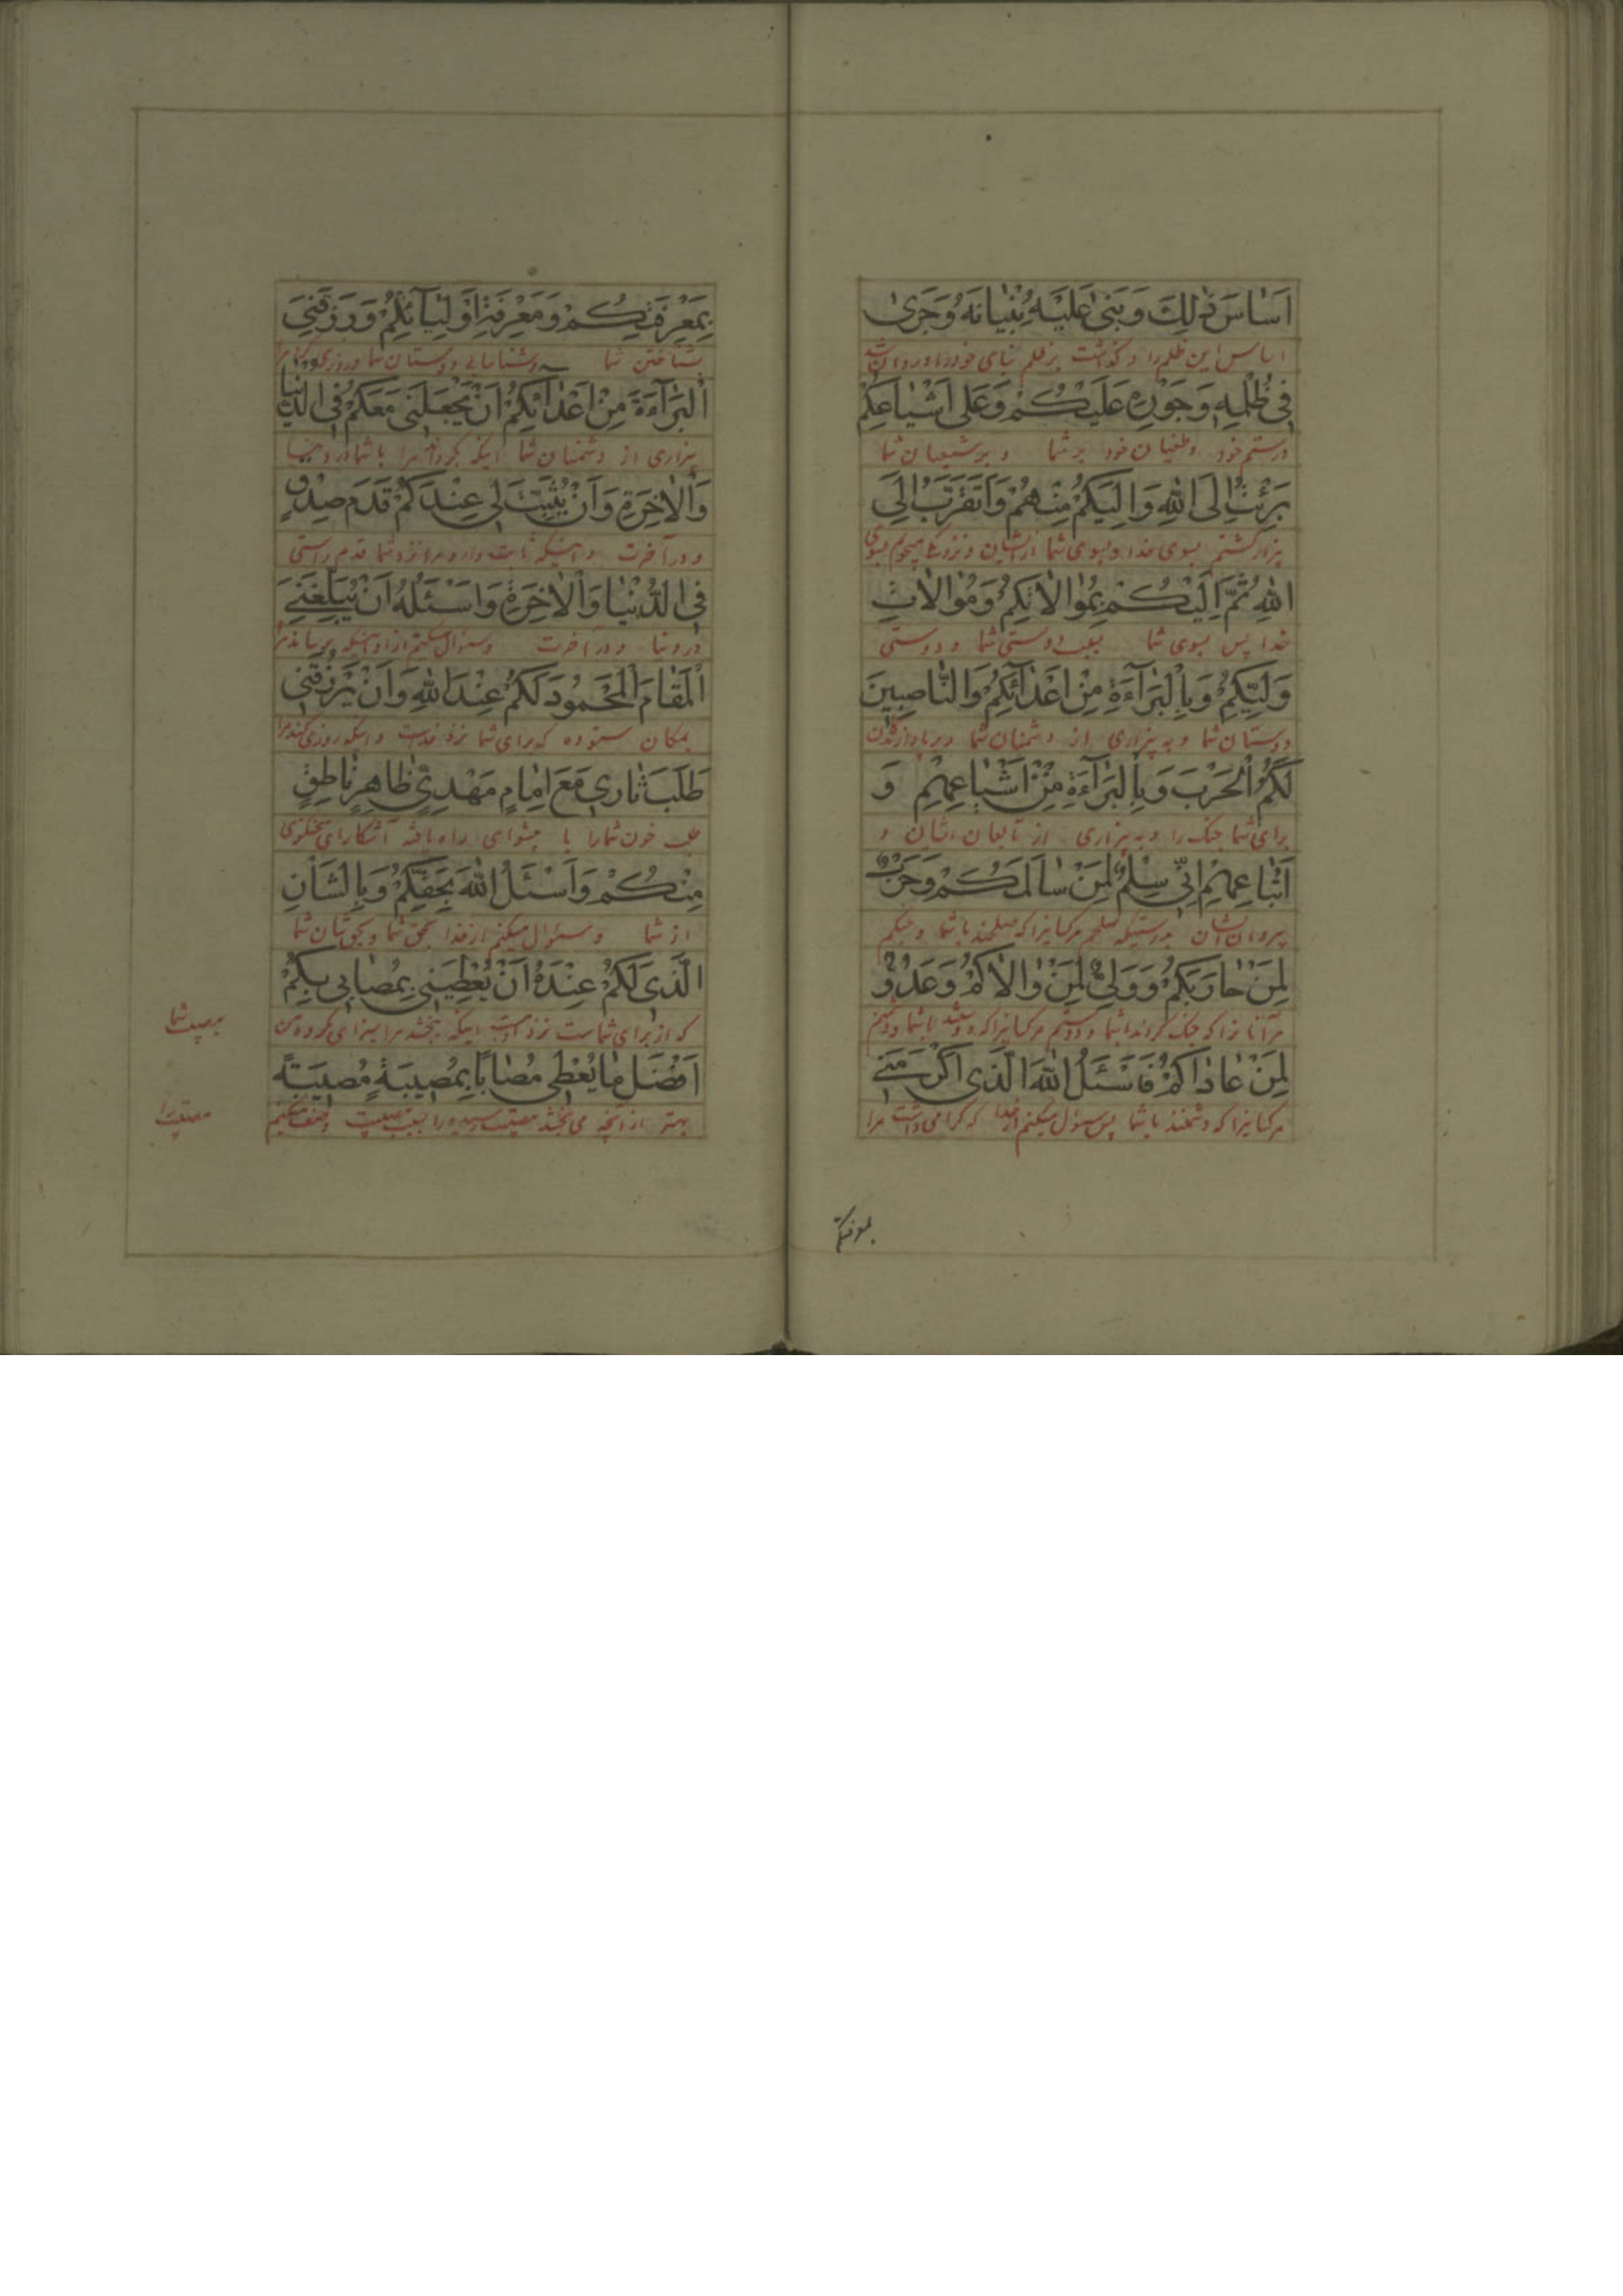 اَساسَ ذٰلِكَ وَبَنىٰ عَلَيْهِ بُنْيانَهُ وَجَرىٰ
اساس این ظلم را و گذاشت بر ظلم بنای خود را و روان شد
فى ظُلْمِهِ وَجَوْرِهِ عَلَيْكُمْ وَعَلى اَشْياعِكُمْ
در ستم خود و طغیان خود بر شما و بر شیعیان شما
بَرِئْتُ اِلَى اللهِ وَاِلَيْكُمْ مِنْهُمْ وَاَتَقَرَّبُ اِلَى
بیزار گشتم بسوی خدا و بسوی شما از ایشان و نزدیکی میجویم بسوی
اللهِ ثُمَّ اِلَيْكُمْ بِمُوالاتِكُمْ وَمُوالاتِ
خدا پس بسوی شما بسبب دوستی شما و دوستی
وَلِيِّكُمْ وَبِالْبَرآءَةِ مِنْ اَعْدآئِكُمْ وَالنّاصِبينَ
دوستان شما و به بیزاری از دشمنان شما و برپا دارندگان
لَكُمُ الْحَرْبَ وَبِالْبَرآءَةِ مِنْ اَشْياعِهِمْ وَ
برای شما جنک را و به بیزاری از تابعان ایشان و
اَتْباعِهِمْ اِنّى سِلْمٌ لِمَنْ سالَمَكُمْ وَحَرْبٌ
پیروان ایشان بدرستیکه صلحم مر کسانیرا که صلحند با شما و جنکم
لِمَنْ حارَبَكُمْ وَوَلِىٌّ لِمَنْ والاكُمْ وَعَدُوٌّ
مر آنانرا که جنک کردند با شما و دوستم مر کسانیرا که دوستند با شما و دشمنم
لِمَنْ عاداكُمْ فَاَسْئَلُ اللهَ الَّذى اَكْرَمَنى
مر کسانیرا که دشمنند با شما پس سئوال میکنم از خدا که گرامی داشت مرا
بمعرفتکم
بِمَعْرِفَتِكُمْ وَمَعْرِفَةِ اَوْلِيآئِكُمْ وَرَزَقَنِىَ
بشناختن شما و شناسایی دوستان شما و روزی کرد مرا
الْبَرآءَةَ مِنْ اَعْدآئِكُمْ اَنْ يَجْعَلَنى مَعَكُمْ فِى الدُّنْيا
بیزاری از دشمنان شما اینکه بگرداند مرا با شما در دنیا
وَالْاٰخِرَةِ وَاَنْ يُثَبِّتَ لى عِنْدَكُمْ قَدَمَ صِدْقٍ
و در آخرت و اینکه ثابت دارد مرا نزد شما قدم راستی
فِى الدُّنْيا وَالْاٰخِرَةِ وَاَسْئَلُهُ اَنْ يُبَلِّغَنِىَ
در دنیا و در آخرت و سئوال میکنم از او اینکه برساند مرا
الْمَقامَ الْمَحْمُودَ لَكُمْ عِنْدَ اللهِ وَاَنْ يَرْزُقَنى
بمکان ستوده که برای شما نزد خداست و اینکه روزی کند مرا
طَلَبَ ثارى مَعَ اِمامٍ مَهْدِىٍّ ظاهِرٍ ناطِقٍ
طلب خون شما را با پیشوای راه یافته آشکارای سخنگوی
مِنْكُمْ وَاَسْئَلُ اللهَ بِحَقِّكُمْ وَبِالشَّاْنِ
از شما و سئوال میکنم از خدا بحق شما و بحق شان شما
الَّذى لَكُمْ عِنْدَهُ اَنْ يُعْطِيَنى بِمُصابى بِكُمْ
که از برای شماست نزد او اینکه ببخشد مرا
بمصیبت شما
اَفْضَلَ ما يُعْطى مُصابًا بِمُصيبَةٍ مُصيبَةً
بهتر از آنچه می بخشد مصیبت رسیده را بسبب مصیبت
مصیبترا